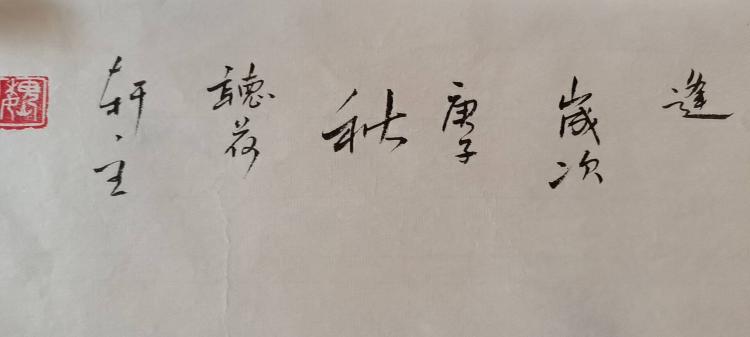 逢
歲次
庚子
秋
聽荷
軒主